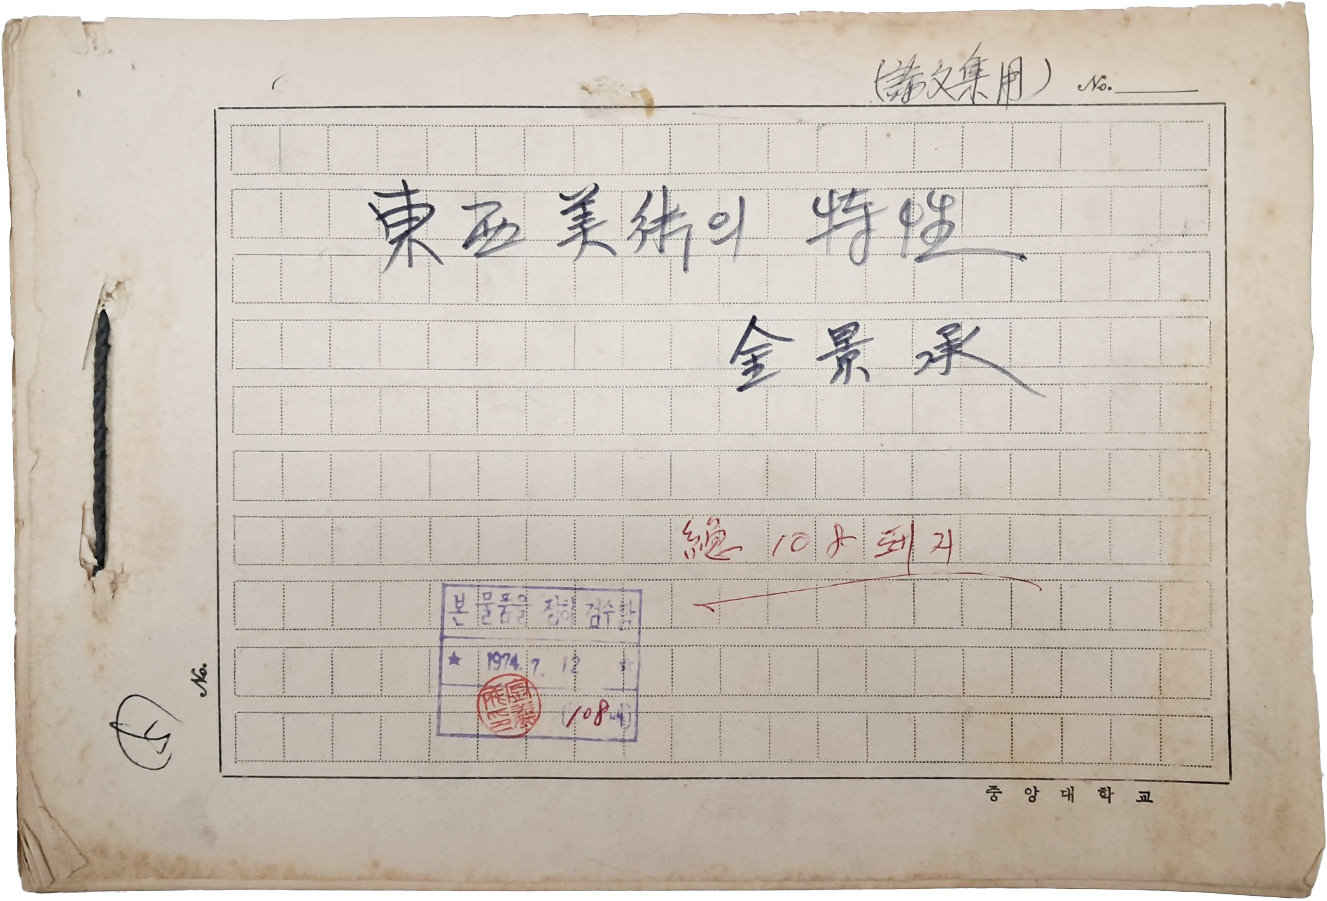 (論文集用) No.
東西美術의 特性
金景承
總 108 페지
본 물품을 정히 검수함
★ 1974. 7. 12 ★
(108매)
No.
중앙대학교